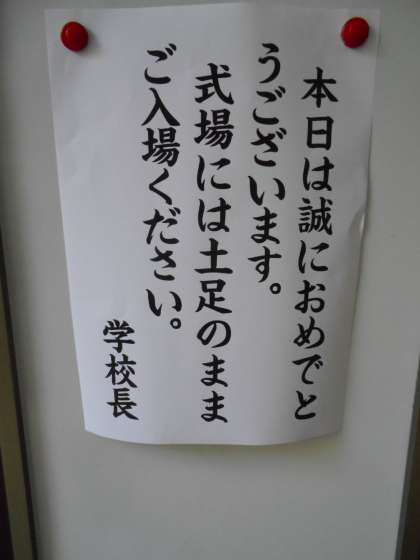 本日は誠におめでと
うございます。
式場には土足のまま
ご入場ください。
学校長